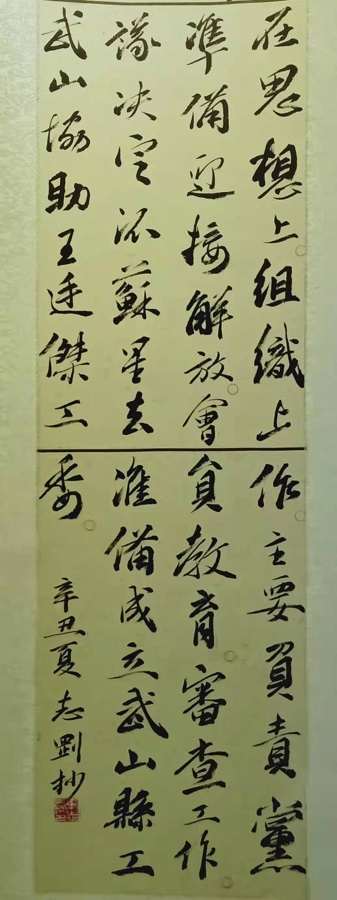 在思想上組織上
準備迎接解放會
議决定派蘇星去
武山協助王廷傑工
作主要負責黨
員教育審查工作
準備成立武山縣工
委
辛丑夏志剛抄